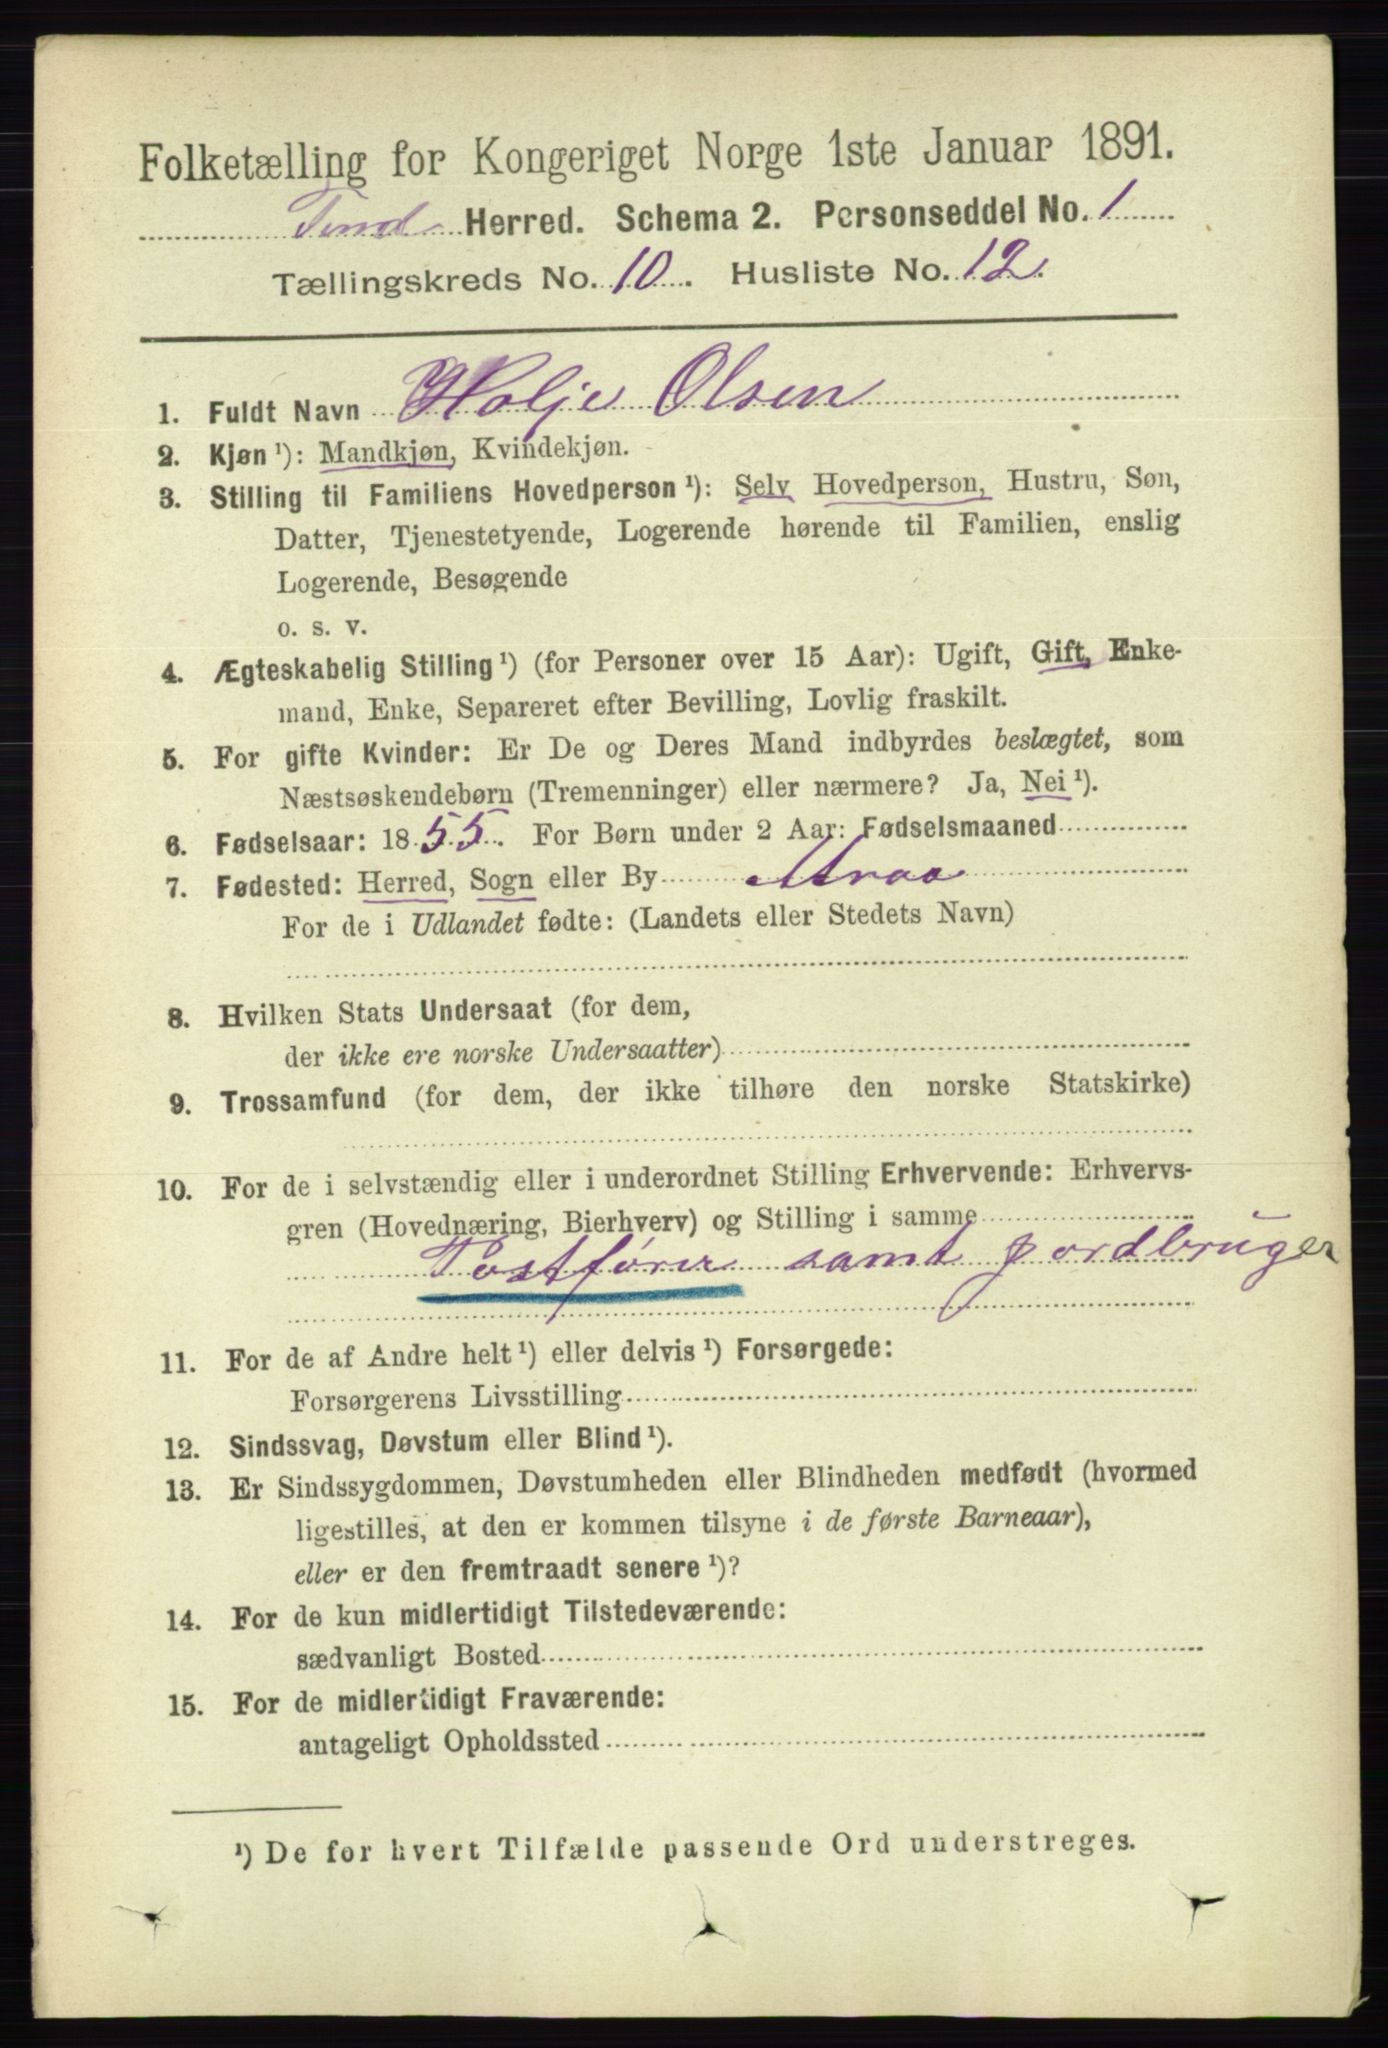 Folketælling for Kongeriget Norge 1ste Januar 1891.
Tind Herred. Schema 2. Personseddel No. 1
Tællingskreds No. 10. Husliste No. 12.
1. Fuldt Navn Holje Olsen
2. Kjøn ¹): Mandkjøn, Kvindekjøn.
3. Stilling til Familiens Hovedperson ¹): Selv Hovedperson, Hustru, Søn,
Datter, Tjenestetyende, Logerende hørende til Familien, enslig
Logerende, Besøgende
o. s. v.
4. Ægteskabelig Stilling ¹) (for Personer over 15 Aar): Ugift, Gift, Enke-
mand, Enke, Separeret efter Bevilling, Lovlig fraskilt.
5. For gifte Kvinder: Er De og Deres Mand indbyrdes beslægtet, som
Næstsøskendebørn (Tremenninger) eller nærmere? Ja, Nei ¹).
6. Fødselsaar: 1855. For Børn under 2 Aar: Fødselsmaaned
7. Fødested: Herred, Sogn eller By
For de i Udlandet fødte: (Landets eller Stedets Navn)
8. Hvilken Stats Undersaat (for dem,
der ikke ere norske Undersaatter)
9. Trossamfund (for dem, der ikke tilhøre den norske Statskirke)
10. For de i selvstændig eller i underordnet Stilling Erhvervende: Erhvervs-
gren (Hovednæring, Bierhverv) og Stilling i samme
Postfører samt jordbruger
11. For de af Andre helt ¹) eller delvis ¹) Forsørgede:
Forsørgerens Livsstilling
12. Sindssvag, Døvstum eller Blind ¹).
13. Er Sindssygdommen, Døvstumheden eller Blindheden medfødt (hvormed
ligestilles, at den er kommen tilsyne i de første Barneaar),
eller er den fremtraadt senere ¹)?
14. For de kun midlertidigt Tilstedeværende:
sædvanligt Bosted
15. For de midlertidigt Fraværende:
antageligt Opholdssted
¹) De for hvert Tilfælde passende Ord understreges.